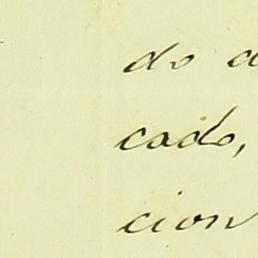 do d
cado,
cion